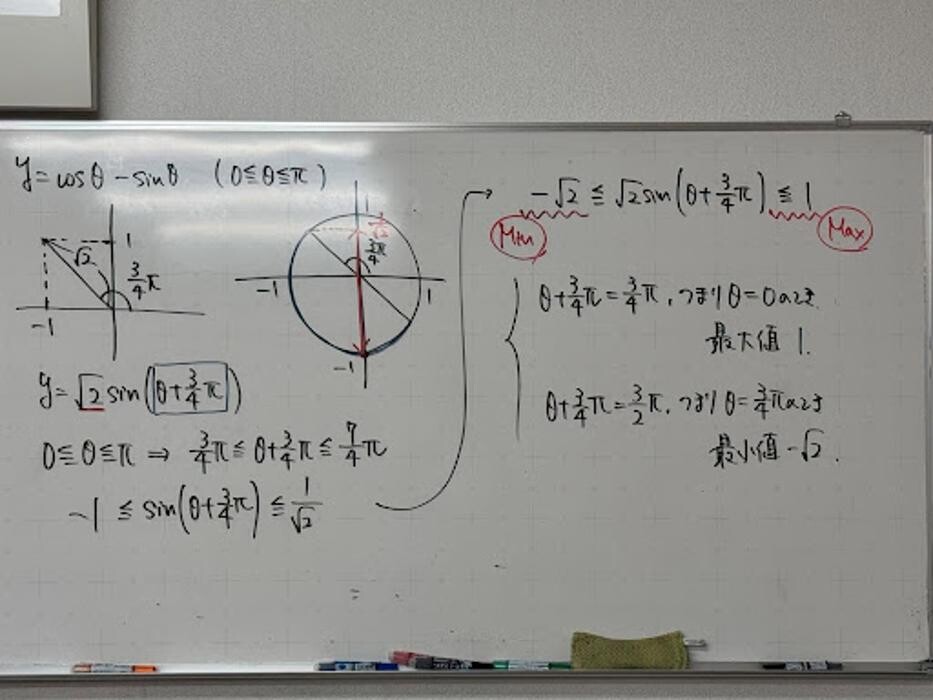 y=cosθ-sinθ (0≦θ≦π)
√2
1
3/4π
-1
1
1/√2
3/4π
-1
1
-1
y=√2sin(θ+3/4π)
0≦θ≦π ⇒ 3/4π≦θ+3/4π≦7/4π
-1≦sin(θ+3/4π)≦1/√2
-√2≦√2sin(θ+3/4π)≦1
Min
Max
θ+3/4π=3/4π, つまりθ=0のとき
最大値 1.
θ+3/4π=3/2π, つまりθ=3/4πのとき
最小値-√2.